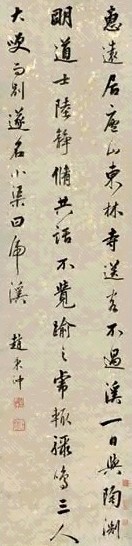 惠遠居廬山東林寺送客不過溪一日與陶淵
明道士陸靜脩共話不覺踰之虎輒驟鳴三人
大咲而別遂名小渠曰虎溪 趙秉沖